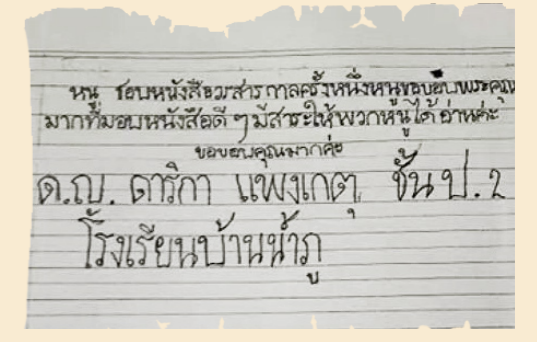 หนู ชอบหนังสือวรสาร กาลครั้งหนึ่งหนูขอบอบพระคุณ
มากที่มอบหนังสือดี ๆ มีสาระให้พวกหนูได้ อ่านค่ะ
ขอบอบคุณมากค่ะ
ด.ญ. ดาริกา แพงเกตุ ชั้น ป. 2
โรงเรียนบ้านน้ำภู